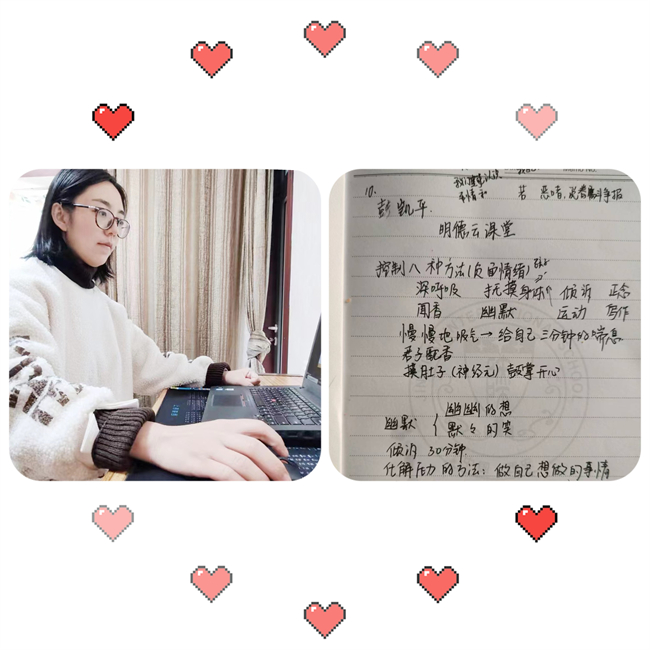 10.
彭凯平
明德云课堂
控制八种方法(负面情绪)
深呼吸 抚摸身体 倾诉 正念
闻香 幽默 运动 写作
慢慢地吸气→给自己三分钟的喘息
君子配香
摸肚子(神经元) 鼓掌开心
幽默 { 幽幽的想
默々的笑
倾诉 30分钟
化解压力的方法:做自己想做的事情